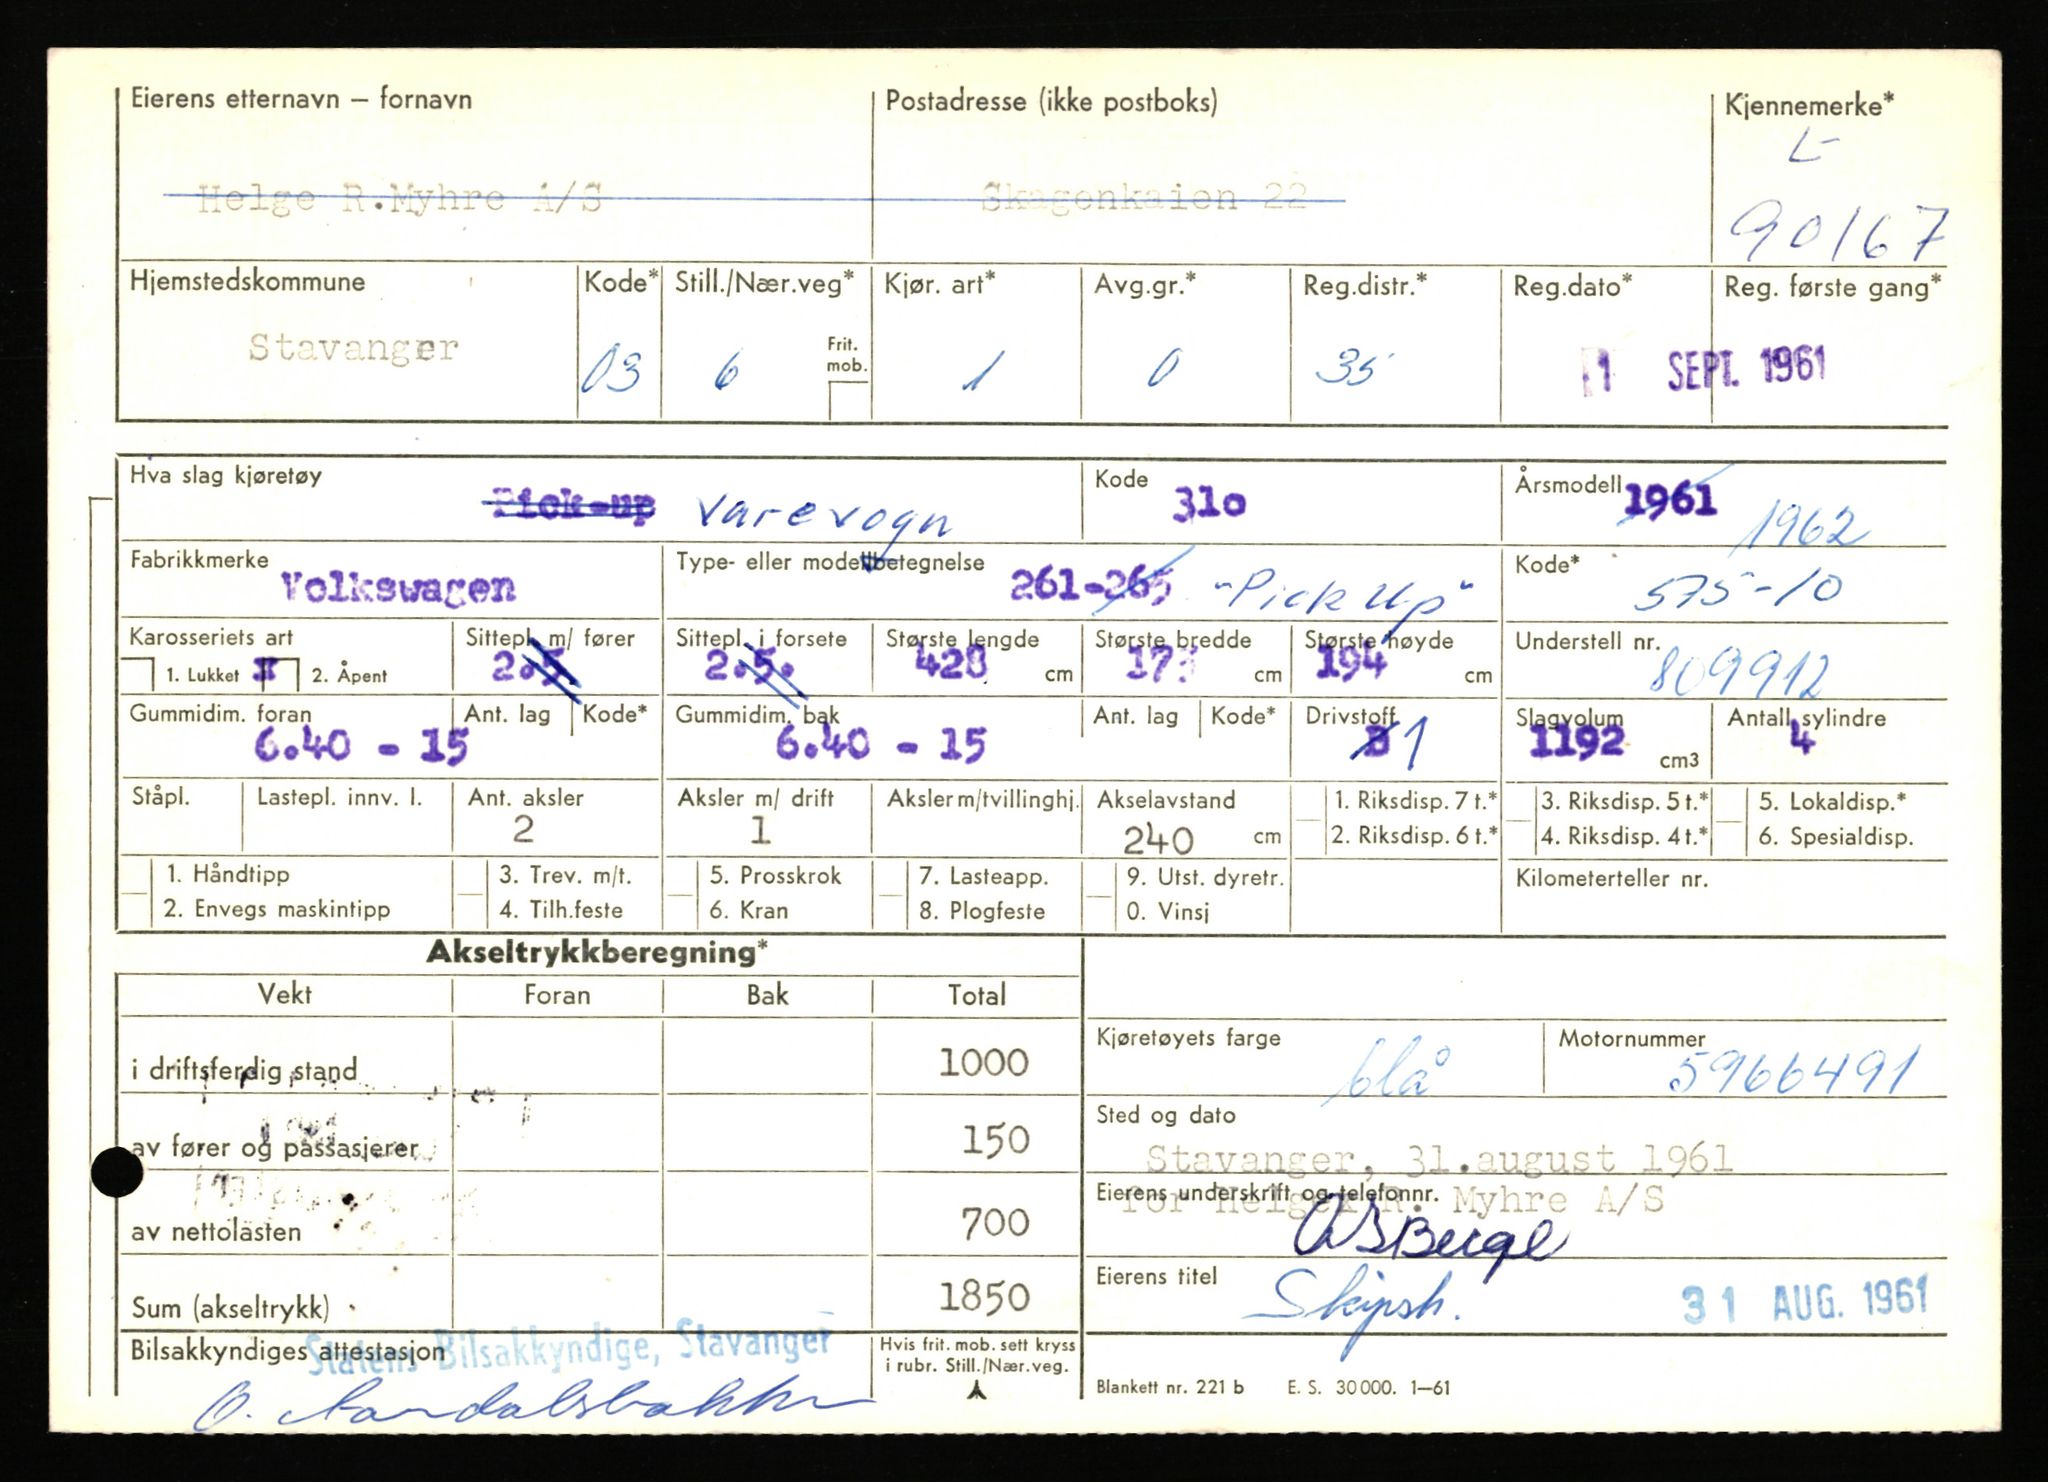 Eierens etternavn – fornavn Postadresse (ikke postboks) Kjennemerke*
L-
Helge R.Myhre A/S Skagenkaien 22
90167
Hjemstedskommune Kode* Still./Nær.veg* Kjør. art* Avg.gr.* Reg.distr.* Reg.dato* Reg. første gang*
Stavanger 03 6 Frit. mob. 1 0 35 1 SEPT. 1961
Hva slag kjøretøy Kode Årsmodell
Pick-up varevogn 310 1961 1962
Fabrikkmerke Type- eller modellbetegnelse Kode*
Volkswagen 261-265 "Pick Up" 575-10
Karosseriets art Sittepl. m/ fører Sittepl. i forsete Største lengde Største bredde Største høyde Understell nr.
1. Lukket X 2. Åpent 2.5. 2.5. 428 cm 173 cm 194 cm 809912
Gummidim. foran Ant. lag Kode* Gummidim. bak Ant. lag Kode* Drivstoff Slagvolum Antall sylindre
6.40 - 15 6.40 - 15 B 1 1192 cm3 4
Ståpl. Lastepl. innv. l. Ant. aksler Aksler m/ drift Aksler m/tvillinghj. Akselavstand 1. Riksdisp. 7 t.* 3. Riksdisp. 5 t.* 5. Lokaldisp.*
2 1 240 cm 2. Riksdisp. 6 t.* 4. Riksdisp. 4 t.* 6. Spesialdisp.
1. Håndtipp 3. Trev. m/t. 5. Prosskrok 7. Lasteapp. 9. Utst. dyretr. Kilometerteller nr.
2. Envegs maskintipp 4. Tilh.feste 6. Kran 8. Plogfeste 0. Vinsj
Akseltrykkberegning*
Vekt Foran Bak Total
i driftsferdig stand 1000
av fører og passasjerer 150
av nettolasten 700
Sum (akseltrykk) 1850
Bilsakkyndiges attestasjon
Statens Bilsakkyndige, Stavanger
Hvis frit. mob. sett kryss
i rubr. Still./Nær.veg.
Kjøretøyets farge Motornummer
blå 5966491
Sted og dato
Stavanger, 31.august 1961
Eierens underskrift og telefonnr.
for Helge R. Myhre A/S
Eierens titel
Skipsh. 31 AUG. 1961
Blankett nr. 221 b E. S. 30 000. 1–61